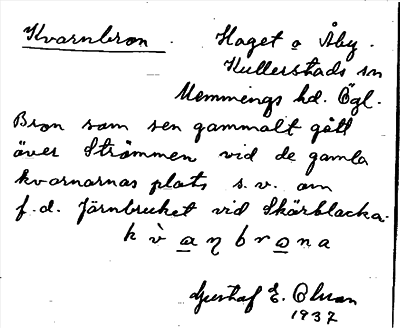 Kvarnbron. Haget o Åby.
Kullerstads sn
Memmings hd. Ögl.
Bron som sen gammalt gått
över Strömmen vid de gamla
kvarnarnas plats s.v. om
f.d. Järnbruket vid Skärblacka.
k v̀ a ƞ b r o n a
Gustaf E. Olsson
1937